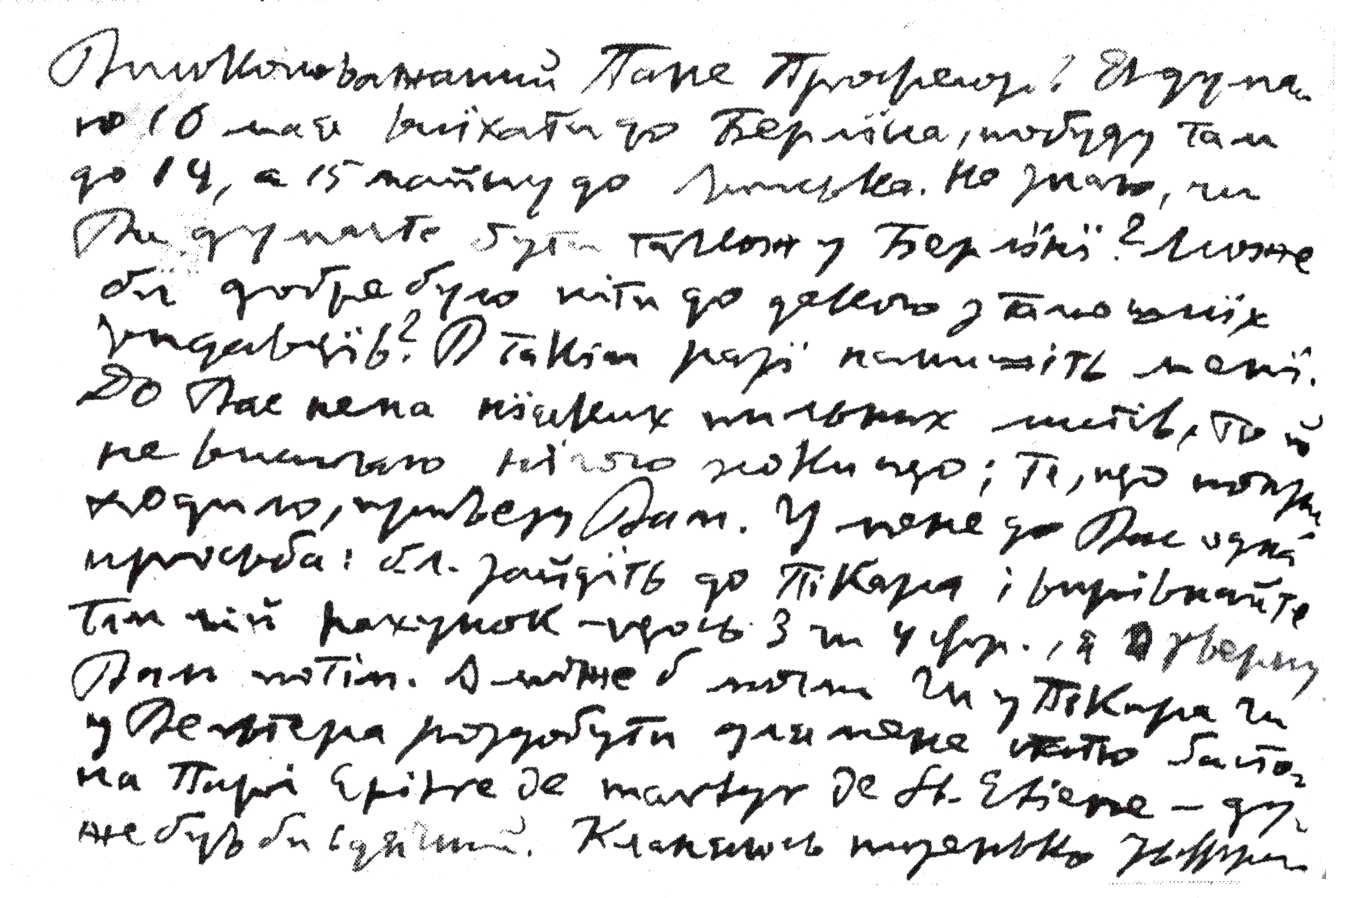 Високоповажаний Пане Професор! Я дума-
ю 10 мая виїхати до Берліна, побуду там
до 14, а 15 поїду до Липська. Не знаю, чи
Ви думаєте бути також у Берліні? Може
би добре було піти до декого з тамошніх
видавців? В такім разі напишіть мені.
До Вас нема ніяких пильних листів, то й
не висилаю нічого поки що; те, що попри-
ходило, привезу Вам. У мене до Вас одна
просьба: бл. зайдіть до Пікара і вирівнайте
там мій рахунок – щось 3 чи 4 фр., я зверну
Вам потім. А може б могли чи у Пікара чи
у Вельтера роздобути для мене
на Парі Epitre de martyr de St. Etiene – ду-
же був би вдячний. Кланяюсь низенько